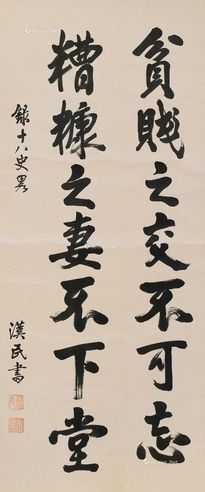 貧賤之交不可忘
糟糠之妻不下堂
錄十八史畧
漢民書